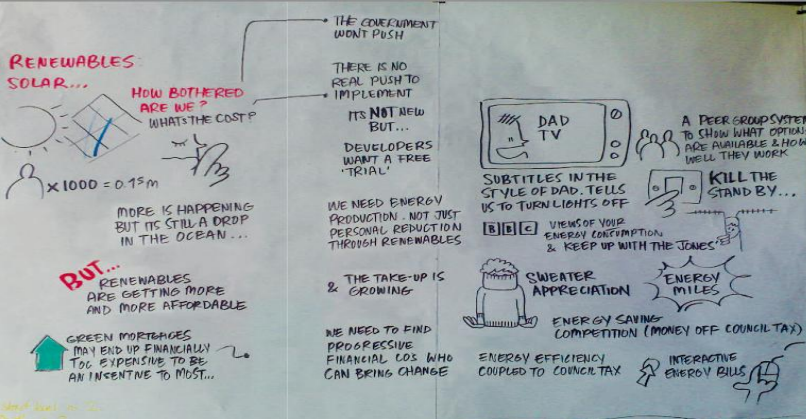 RENEWABLES:
SOLAR...
HOW BOTHERED
ARE WE?
WHATS THE COST?
x 1000 = 0.15m
MORE IS HAPPENING
BUT ITS STILL A DROP
IN THE OCEAN...
BUT...
RENEWABLES
ARE GETTING MORE
AND MORE AFFORDABLE
GREEN MORTGAGES
MAY END UP FINANCIALLY
TOO EXPENSIVE TO BE
AN INSENTIVE TO MOST...
THE GOVERNMENT
WONT PUSH
THERE IS NO
REAL PUSH TO
IMPLEMENT
ITS NOT NEW
BUT...
DEVELOPERS
WANT A FREE
'TRIAL'
WE NEED ENERGY
PRODUCTION. NOT JUST
PERSONAL REDUCTION
THROUGH RENEWABLES
& THE TAKE-UP IS
GROWING
WE NEED TO FIND
PROGRESSIVE
FINANCIAL COS WHO
CAN BRING CHANGE
DAD
TV
SUBTITLES IN THE
STYLE OF DAD. TELLS
US TO TURN LIGHTS OFF
A PEER GROUP SYSTEM
TO SHOW WHAT OPTION
ARE AVAILABLE & HOW
WELL THEY WORK
KILL THE
STAND BY...
BBC VIEWS OF YOUR
ENERGY CONSUMPTION
& KEEP UP WITH THE JONES'
SWEATER
APPRECIATION
ENERGY
MILES
ENERGY SAVING
COMPETITION (MONEY OFF COUNCIL TAX)
ENERGY EFFICIENCY
COUPLED TO COUNCIL TAX
INTERACTIVE
ENERGY BILLS